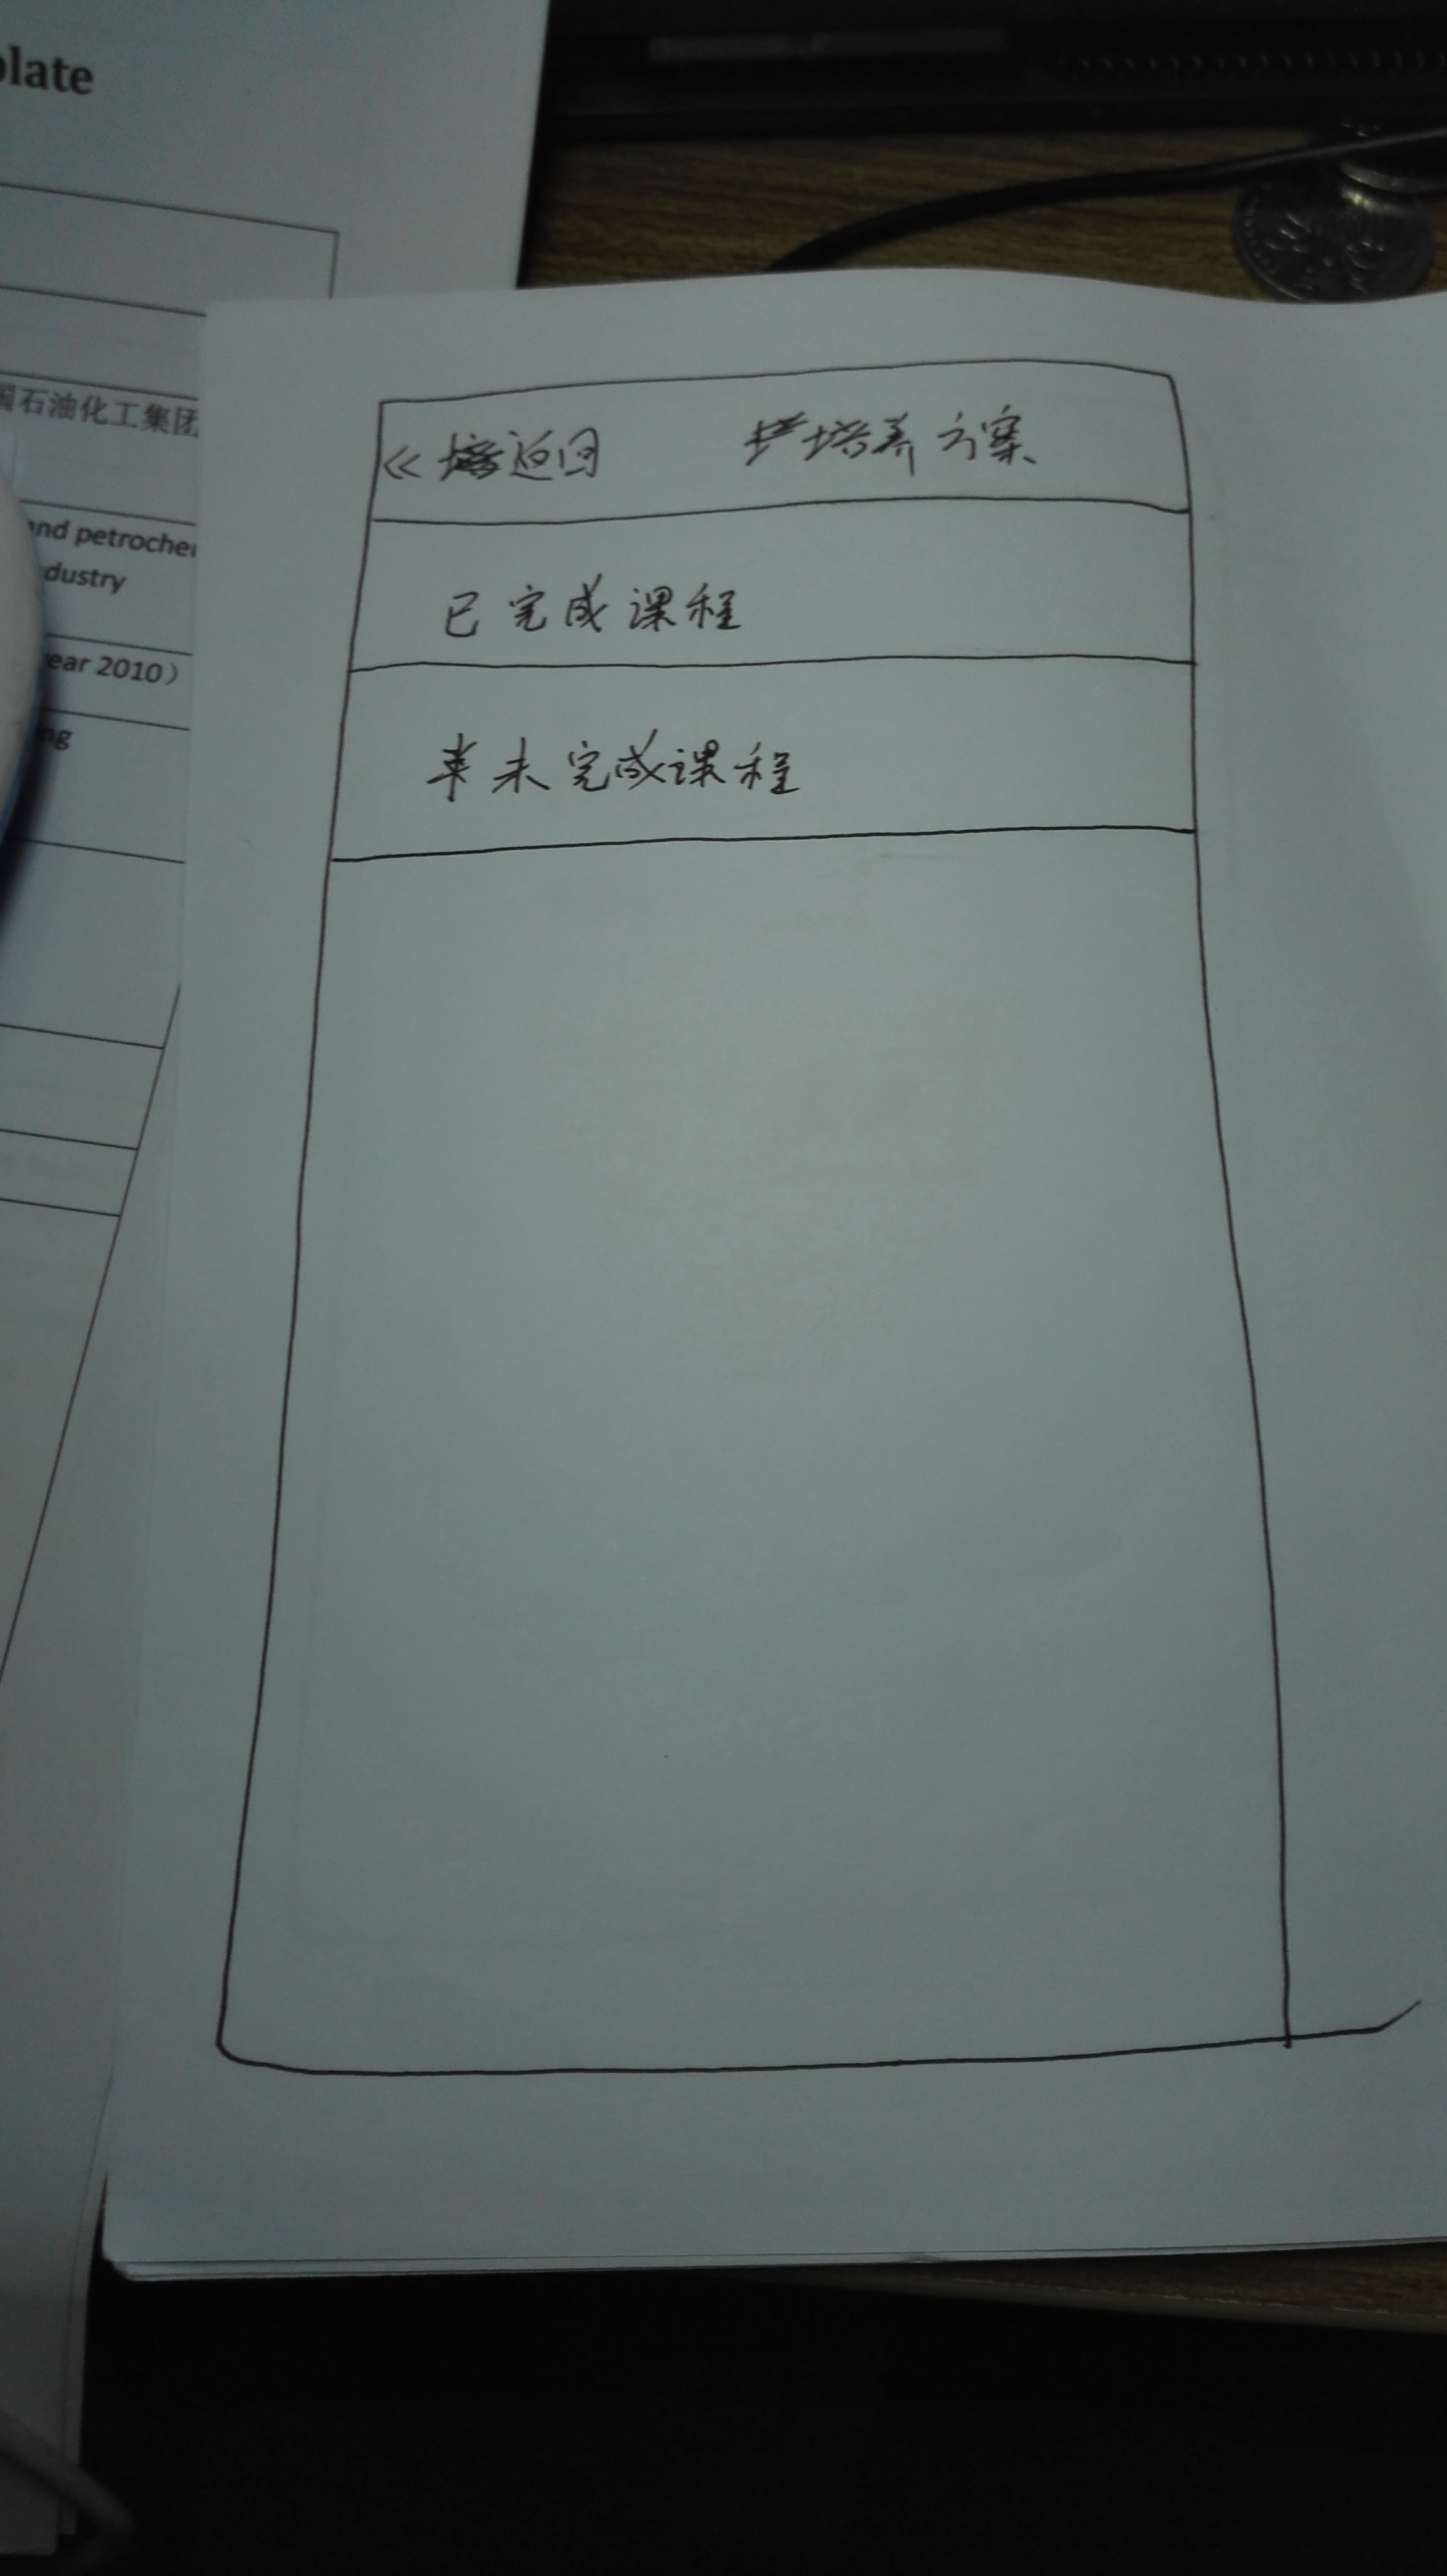 plate
国石油化工集团
and petrochem
dustry
year 2010）
ng
<< 返回 培养方案
已完成课程
未完成课程